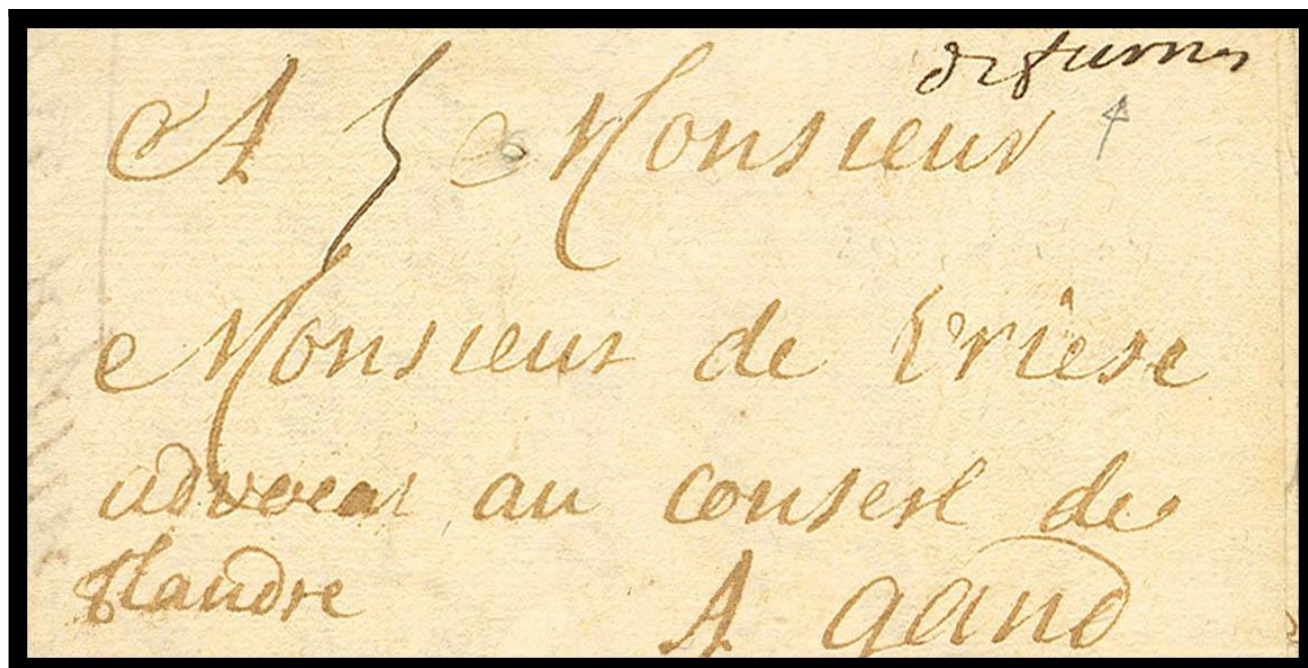 de furnes
A Monsieur
Monsieur de vriese
advocat au conseil de
flandre A gand